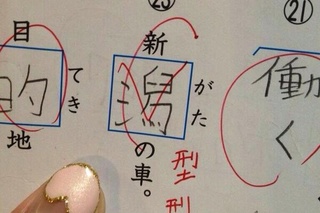 ㉑
働
く
㉓
新
潟
がた
の車。
型
型
目
的
てき
地